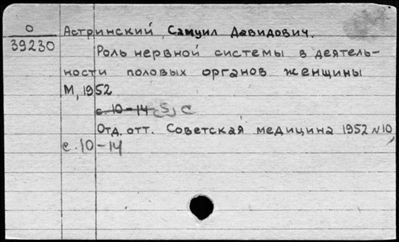 О
39230
Астринский, Самуил Давидович.
Роль нервной системы в деятель-
ности половых органов женщины
М, 1952
с. 10-14
Отд. отт. Советская медицина 1952 N10,
с. 10-14